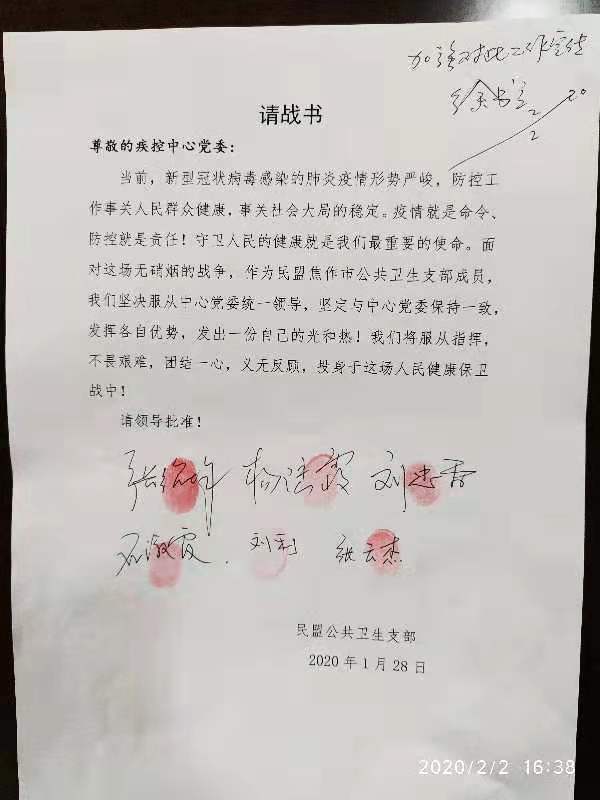 加强对此工作宣传
2/2 20
请战书
尊敬的疾控中心党委：
当前，新型冠状病毒感染的肺炎疫情形势严峻，防控工
作事关人民群众健康，事关社会大局的稳定。疫情就是命令、
防控就是责任！守卫人民的健康就是我们最重要的使命。面
对这场无硝烟的战争，作为民盟焦作市公共卫生支部成员，
我们坚决服从中心党委统一领导，坚定与中心党委保持一致，
发挥各自优势，发出一份自己的光和热！我们将服从指挥，
不畏艰难，团结一心，义无反顾，投身于这场人民健康保卫
战中！
请领导批准！
刘忠香
刘利 张云杰
民盟公共卫生支部
2020年1月28日
2020/2/2 16:38